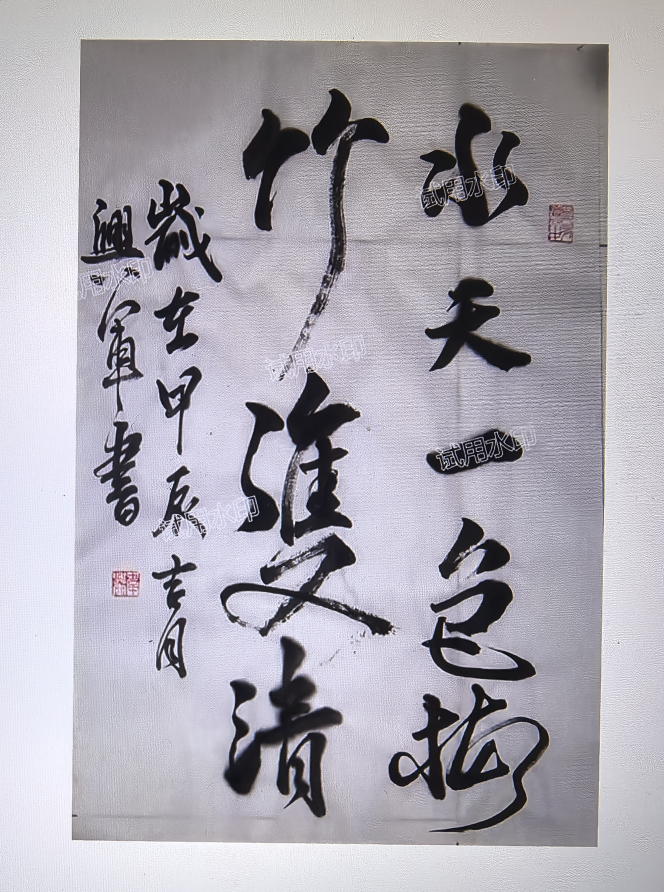 水天一色梅
竹雙清
歲在甲辰吉月
興軍書
试用水印
试用水印
试用水印
试用水印
试用水印